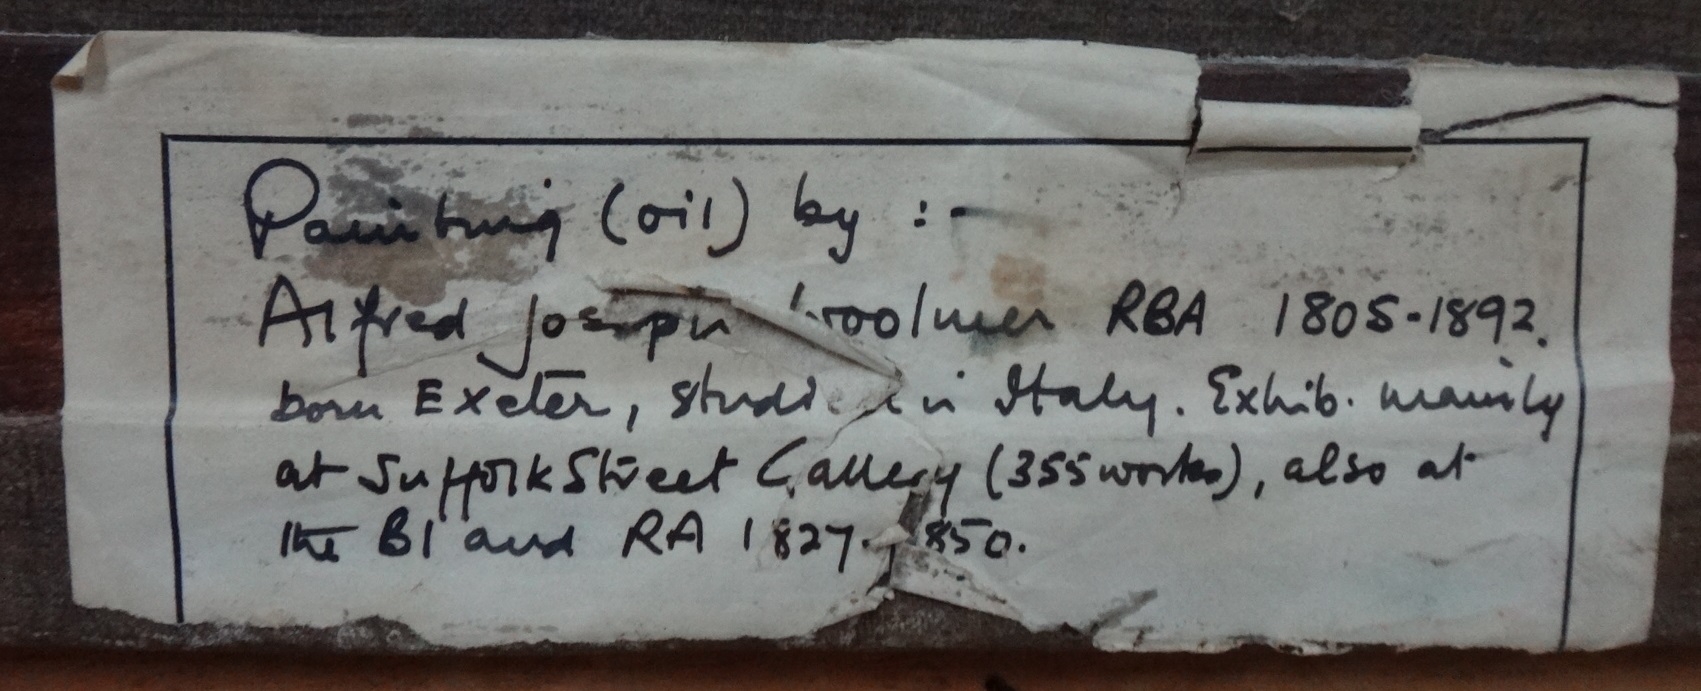 Painting (oil) by :-
Alfred Joseph Woolmer RBA 1805-1892.
born Exeter, studied in Italy. Exhib. mainly
at Suffolk Street Gallery (355 works), also at
the BI and RA 1827-1850.